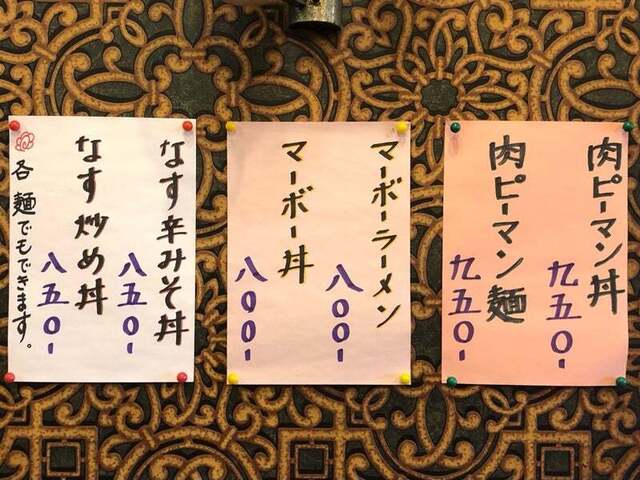 肉ピーマン丼
九五〇-
肉ピーマン麺
九五〇-
マーボーラーメン
八〇〇-
マーボー丼
八〇〇-
なす辛みそ丼
八五〇-
なす炒め丼
八五〇-
各麺でもできます。